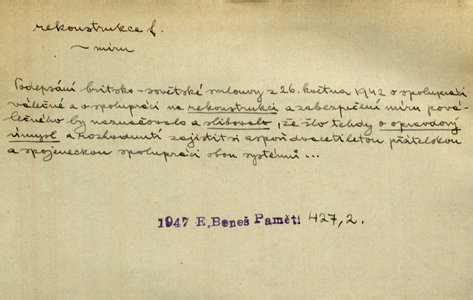 rekonstrukce f.
~ míru
Podepsání britsko-sovětské smlouvy z 26. května 1942 o spolupráci
válečné a o spolupráci na rekonstrukci a zabezpečení míru pová-
lečného by naznačovalo a slibovalo, že šlo tehdy o opravdový
úmysl a rozhodnutí zajistit si aspoň dvacetiletou přátelskou
a spojeneckou spolupráci obou systémů ...
1947 E. Beneš Paměti 427,2.